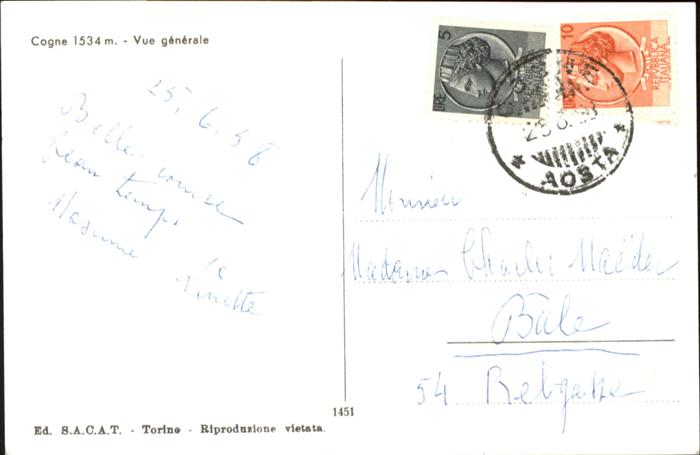 Cogne 1534 m. - Vue générale
25.6.58
Belle course
beau temps
Ninette
5
LIRE
10
LIRE
REPVBBLICA
ITALIANA
AOSTA
Monsieur
Madame Charles Maeder
Bâle
54 Rebgasse
1451
Ed. S.A.C.A.T. - Torino - Riproduzione vietata.